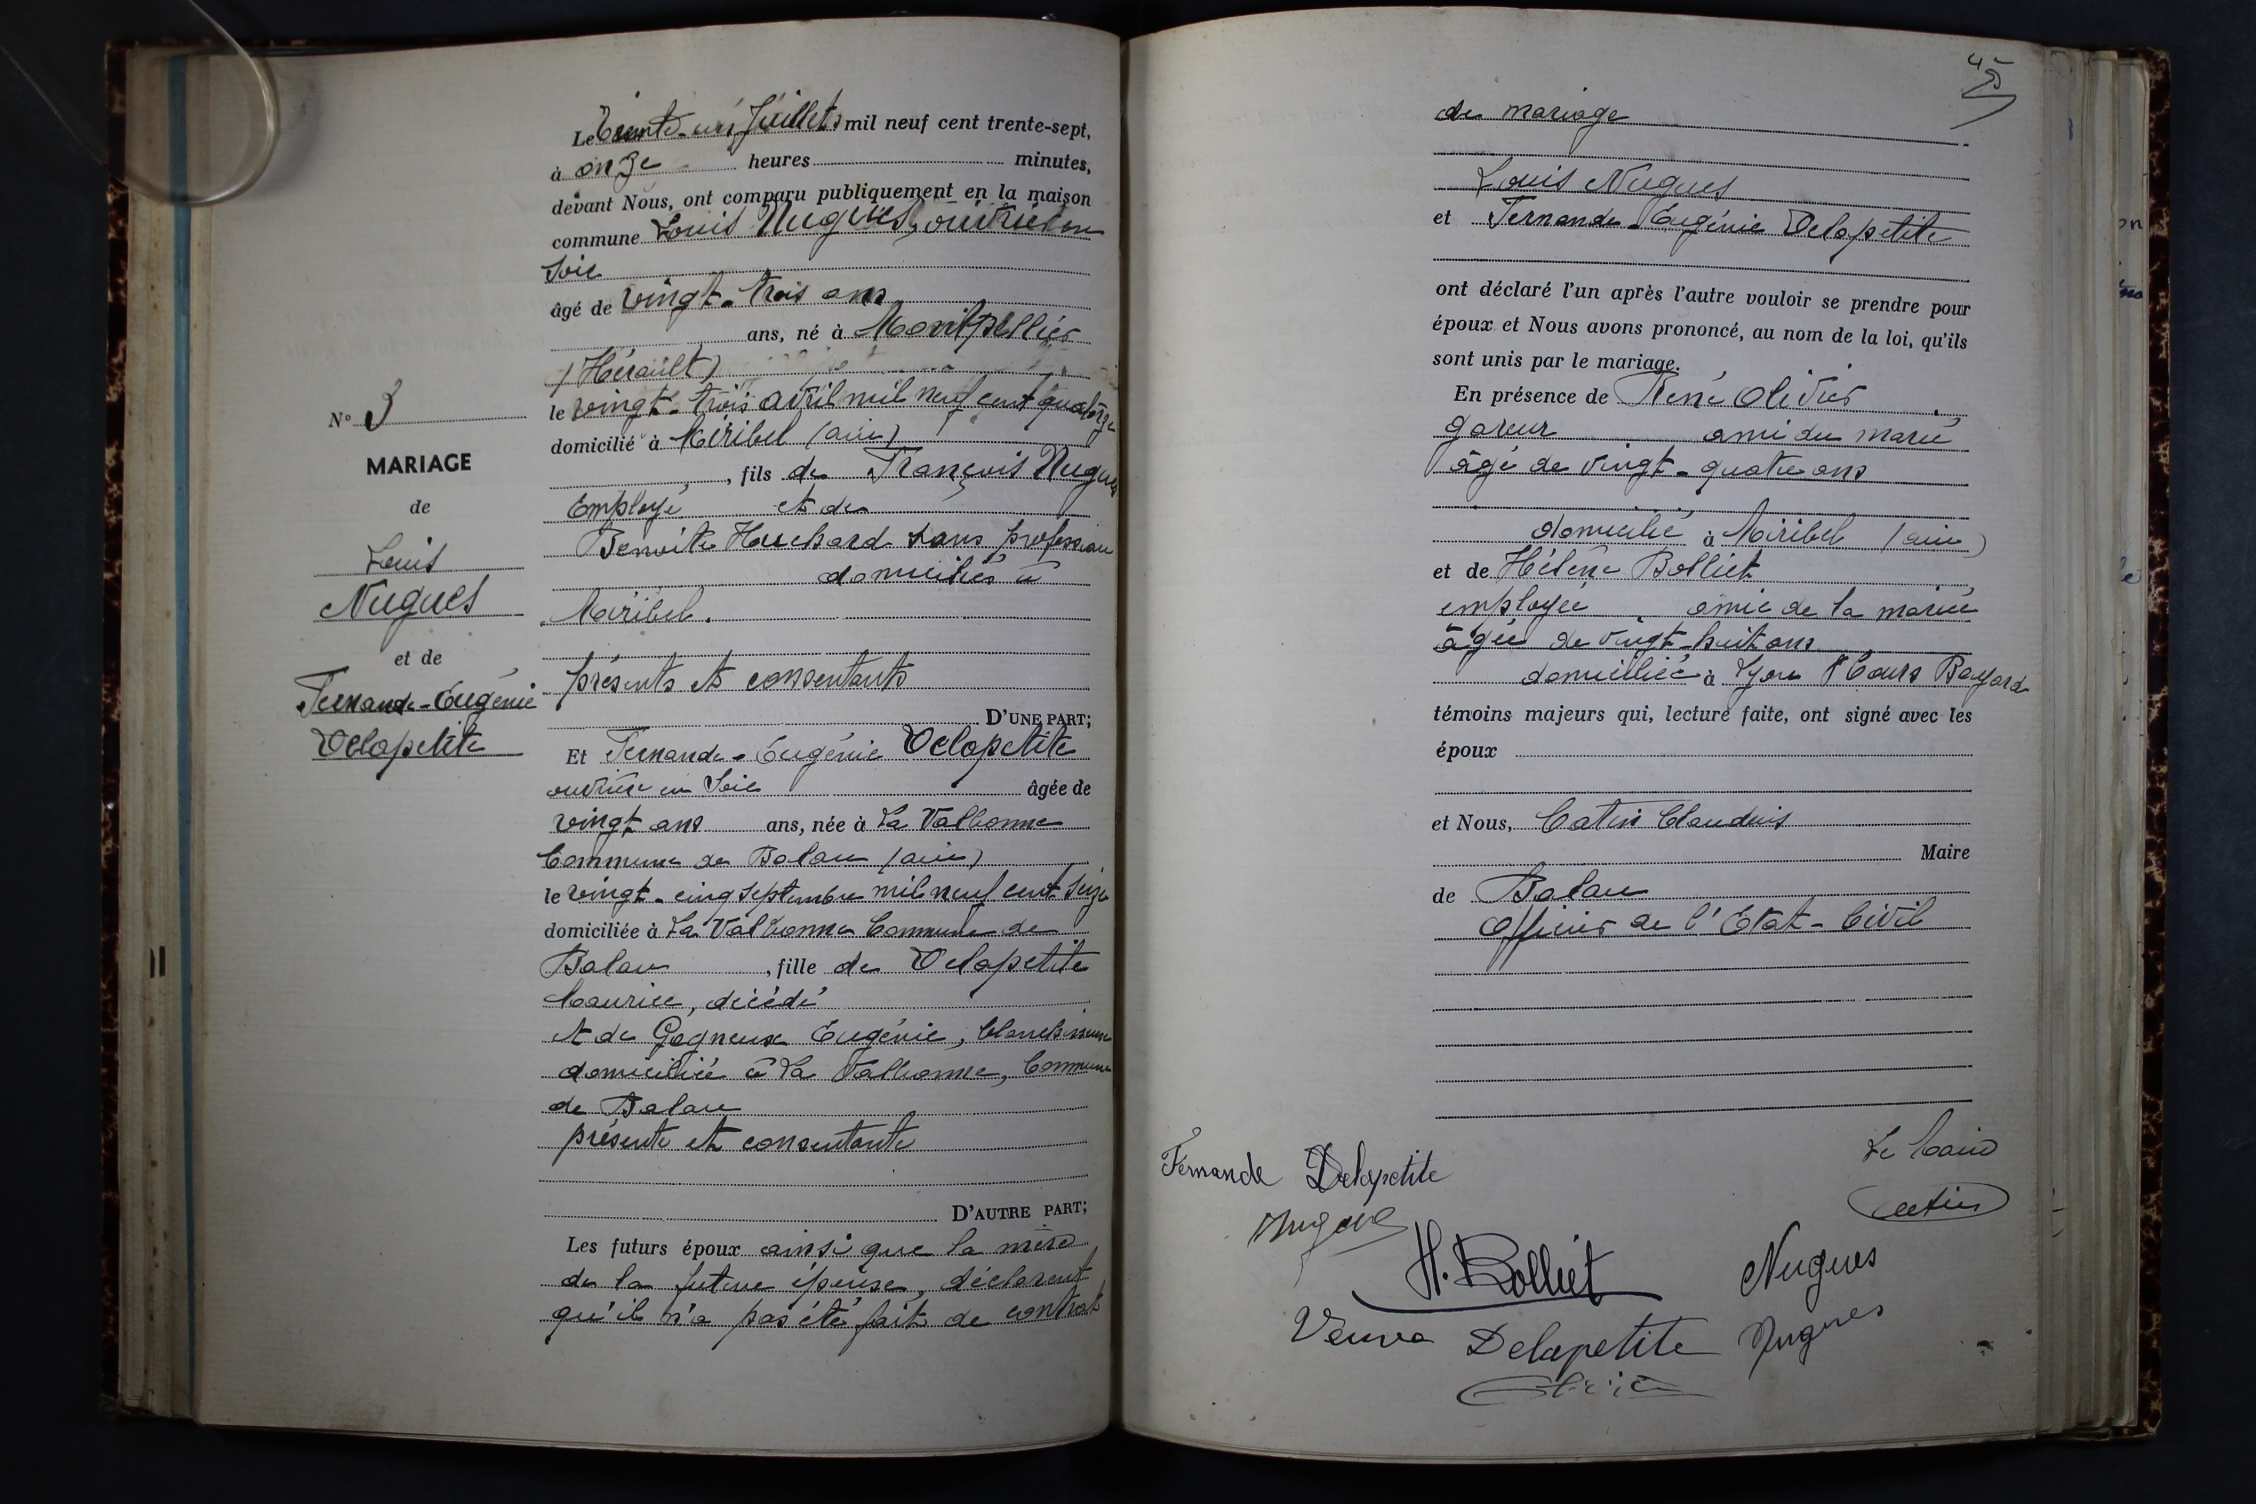 Le Trente-un Juillet, mil neuf cent trente-sept,
à onze heures minutes,
devant Nous, ont comparu publiquement en la maison
commune Louis Nugues, ouvrier en
soie
âgé de vingt-trois ans
ans, né à Montpellier
(Hérault)
le vingt-trois avril mil neuf cent quatorze
domicilié à Miribel (ain)
, fils de François Nugues
Employé et de
Benoite Houchard sans profession
domiciliés à
Miribel.
présents et consentants
D'UNE PART;
N° 3
MARIAGE
de
Louis
Nugues
et de
Fernande-Eugénie
Delapetite
Et Fernande-Eugénie Delapetite
ouvrière en soie âgée de
vingt ans ans, née à La Valbonne
Commune de Balan (ain)
le vingt-cinq septembre mil neuf cent seize
domiciliée à La Valbonne Commune de
Balan , fille de Delapetite
Maurice, décédé
et de Gagneux Eugénie, blanchisseuse
domiciliée à La Valbonne, Commune
de Balan
présente et consentante
D'AUTRE PART;
Les futurs époux ainsi que la mère
de la future épouse, déclarent
qu'il n'a pas été fait de contrat
45
de mariage
Louis Nugues
et Fernande-Eugénie Delapetite
ont déclaré l'un après l'autre vouloir se prendre pour
époux et Nous avons prononcé, au nom de la loi, qu'ils
sont unis par le mariage.
En présence de René Olivier
gareur ami du marié
âgé de vingt-quatre ans
domicilié à Miribel (ain)
et de Hélène Bolliet
employée amie de la mariée
âgée de vingt-huit ans
domiciliée à Lyon Cours Bayard
témoins majeurs qui, lecture faite, ont signé avec les
époux
et Nous, Catin Claudius
Maire
de Balan
Officier de l'Etat-Civil
Le Maire
Catin
Fernande Delapetite
Nugues
H. Bolliet
Nugues
Veuve Delapetite
Nugues